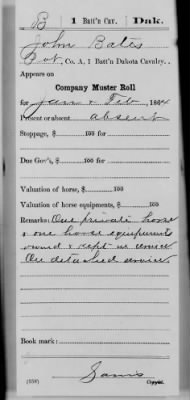 B | 1 | Batt'n Cav. | Dak.
John Bates
Pvt, Co. A, 1 Batt'n Dakota Cavalry.
Appears on
Company Muster Roll
for Jan & Feb, 1864
Present or absent absent
Stoppage, $ 100 for
Due Gov't, $ 100 for
Valuation of horse, $ 100
Valuation of horse equipments, $ 100
Remarks: One private horse
& one horse equipments
owned & kept in service
On detached service
Book mark:
(358) Copyist.